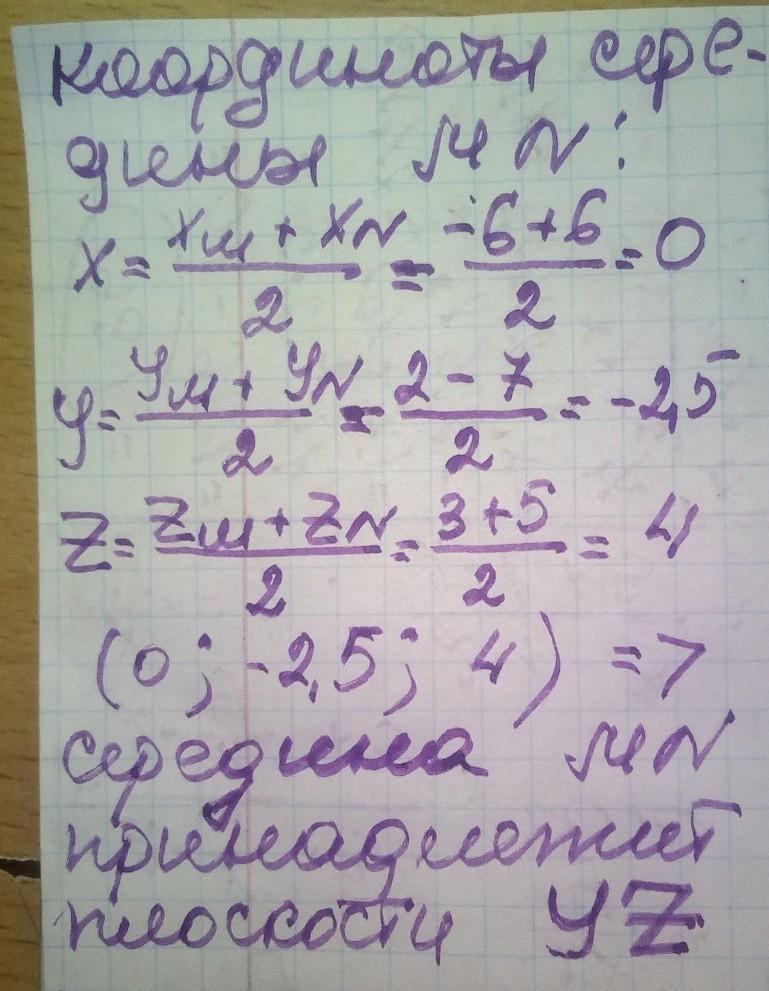 координаты сере-
дины MN:
x = (xм + xN)/2 = (-6+6)/2 = 0
y = (yм + yN)/2 = (2-7)/2 = -2,5
z = (zм + zN)/2 = (3+5)/2 = 4
(0; -2,5; 4) =>
середина MN
принадлежит
плоскости YZ